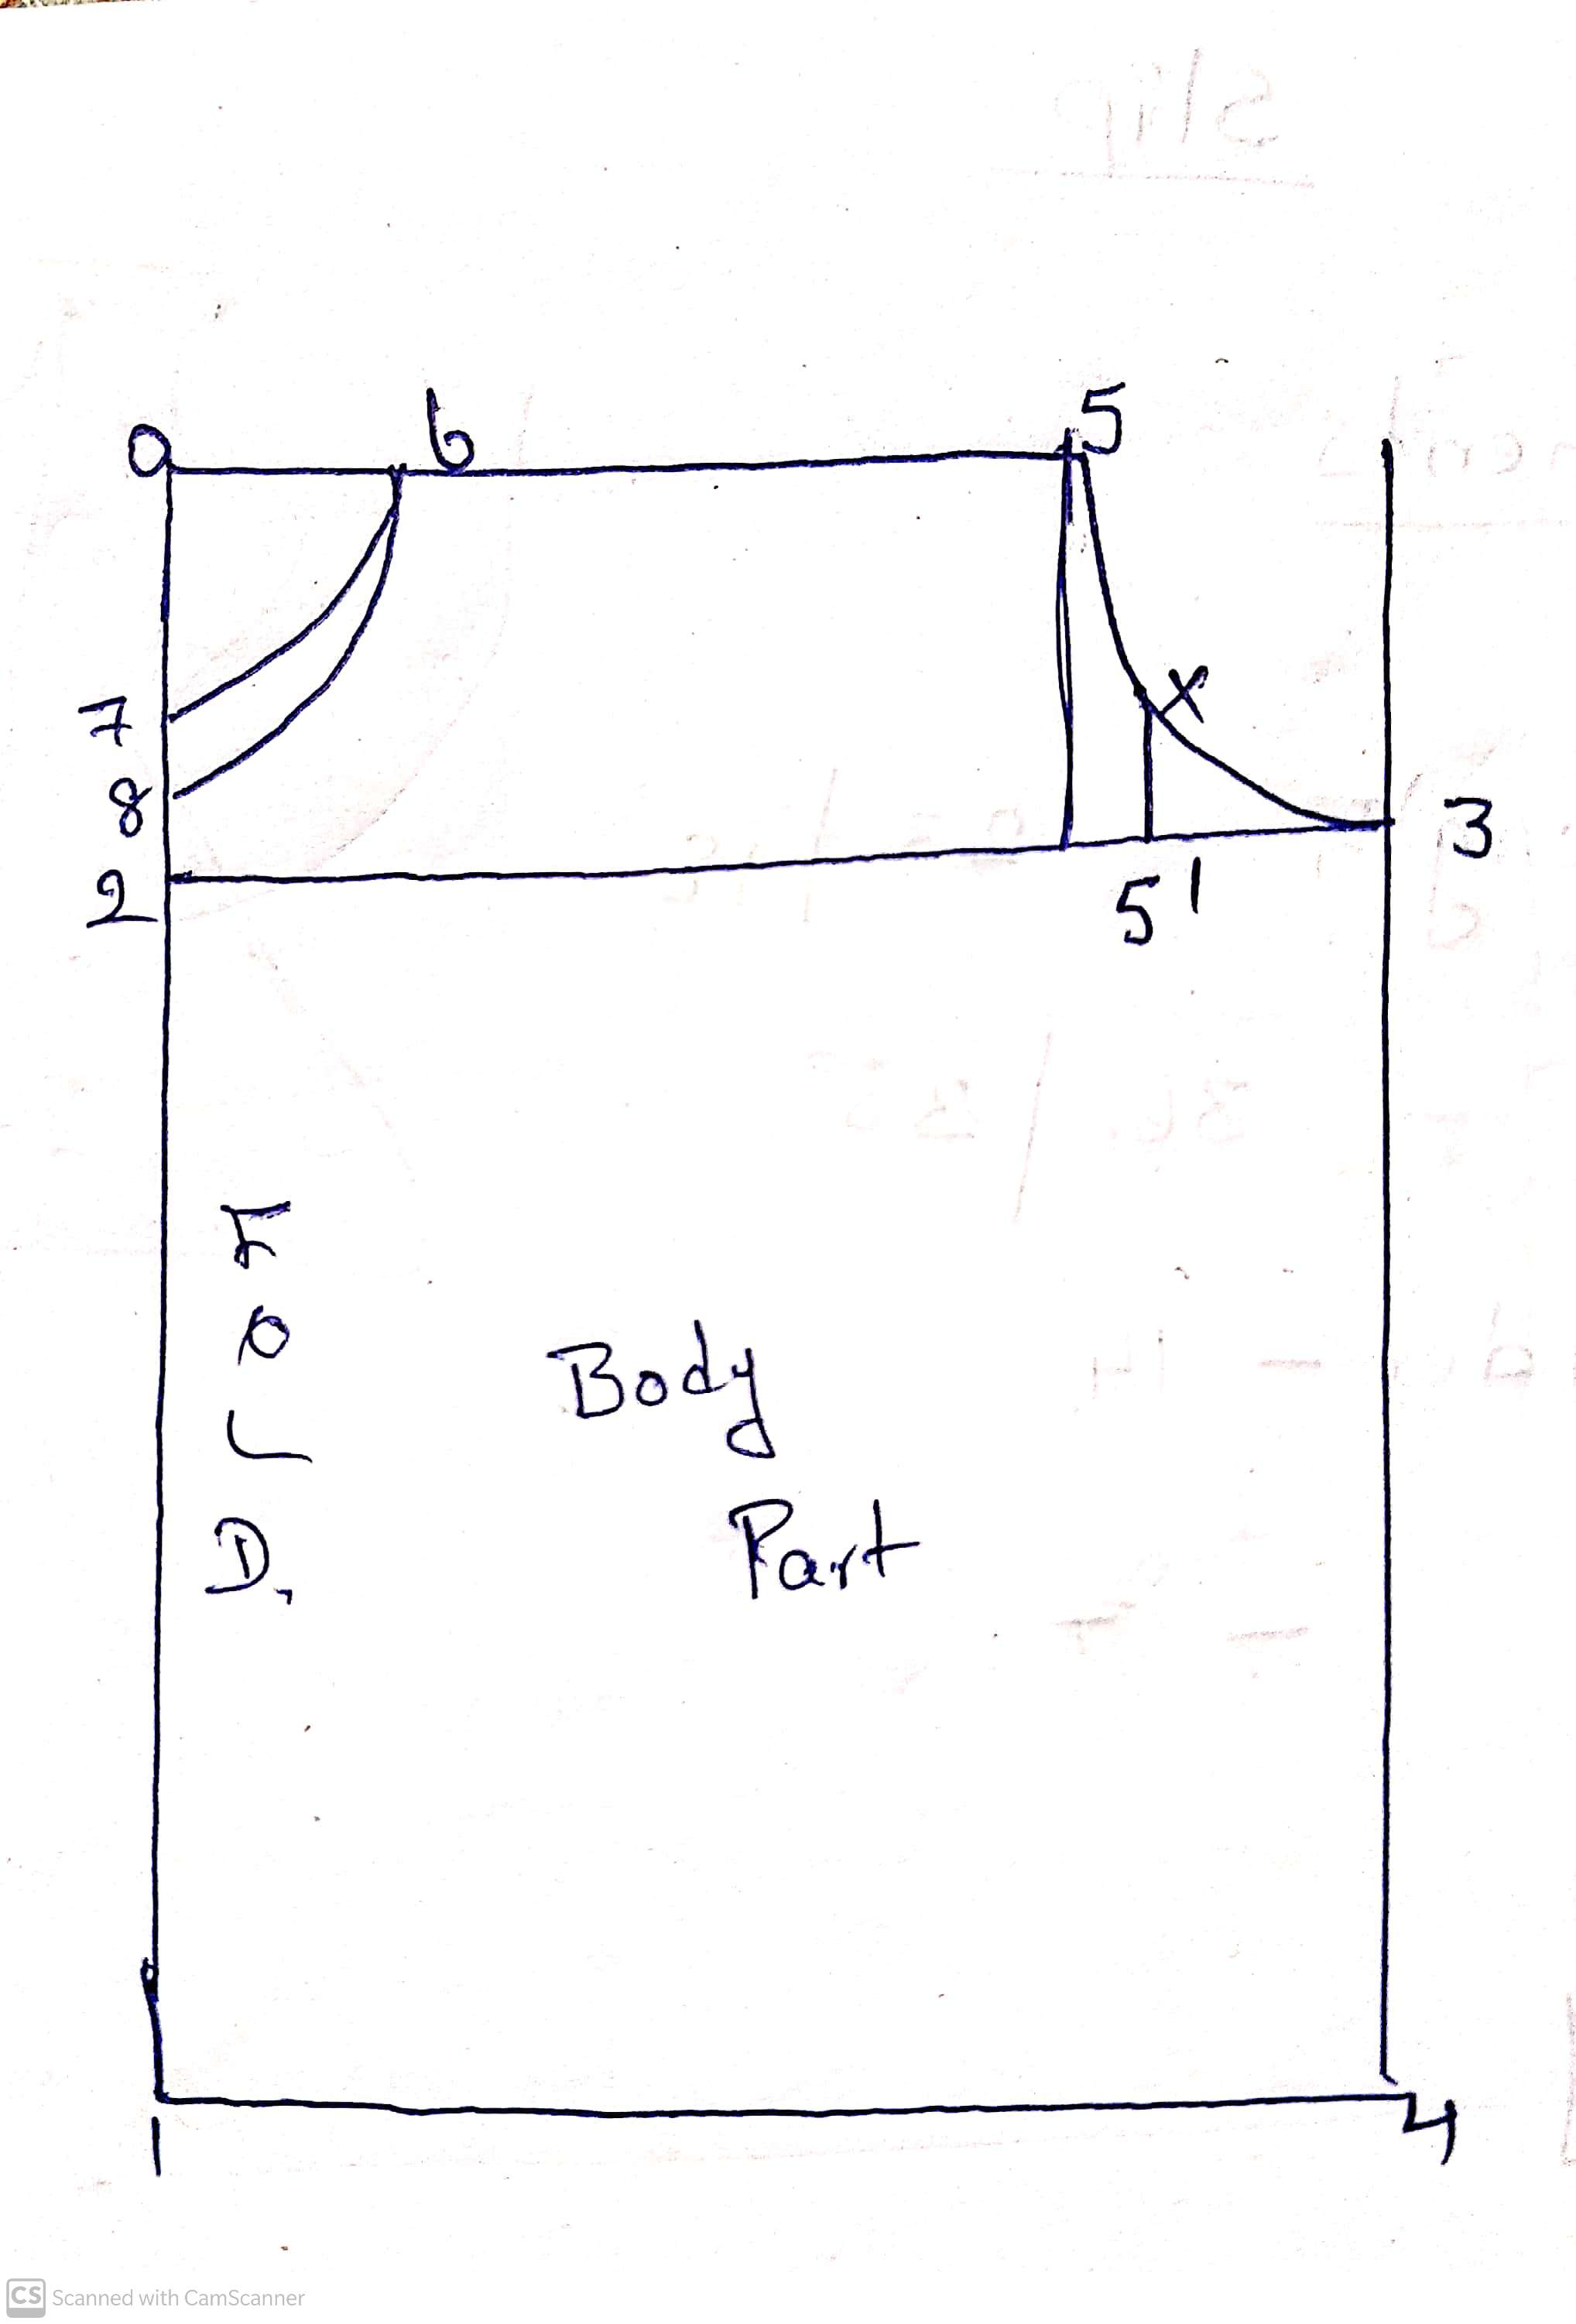 0 6 5
x
7
8
3
2
5'
F
O
L
D.
Body
Part
1
4
CS Scanned with CamScanner